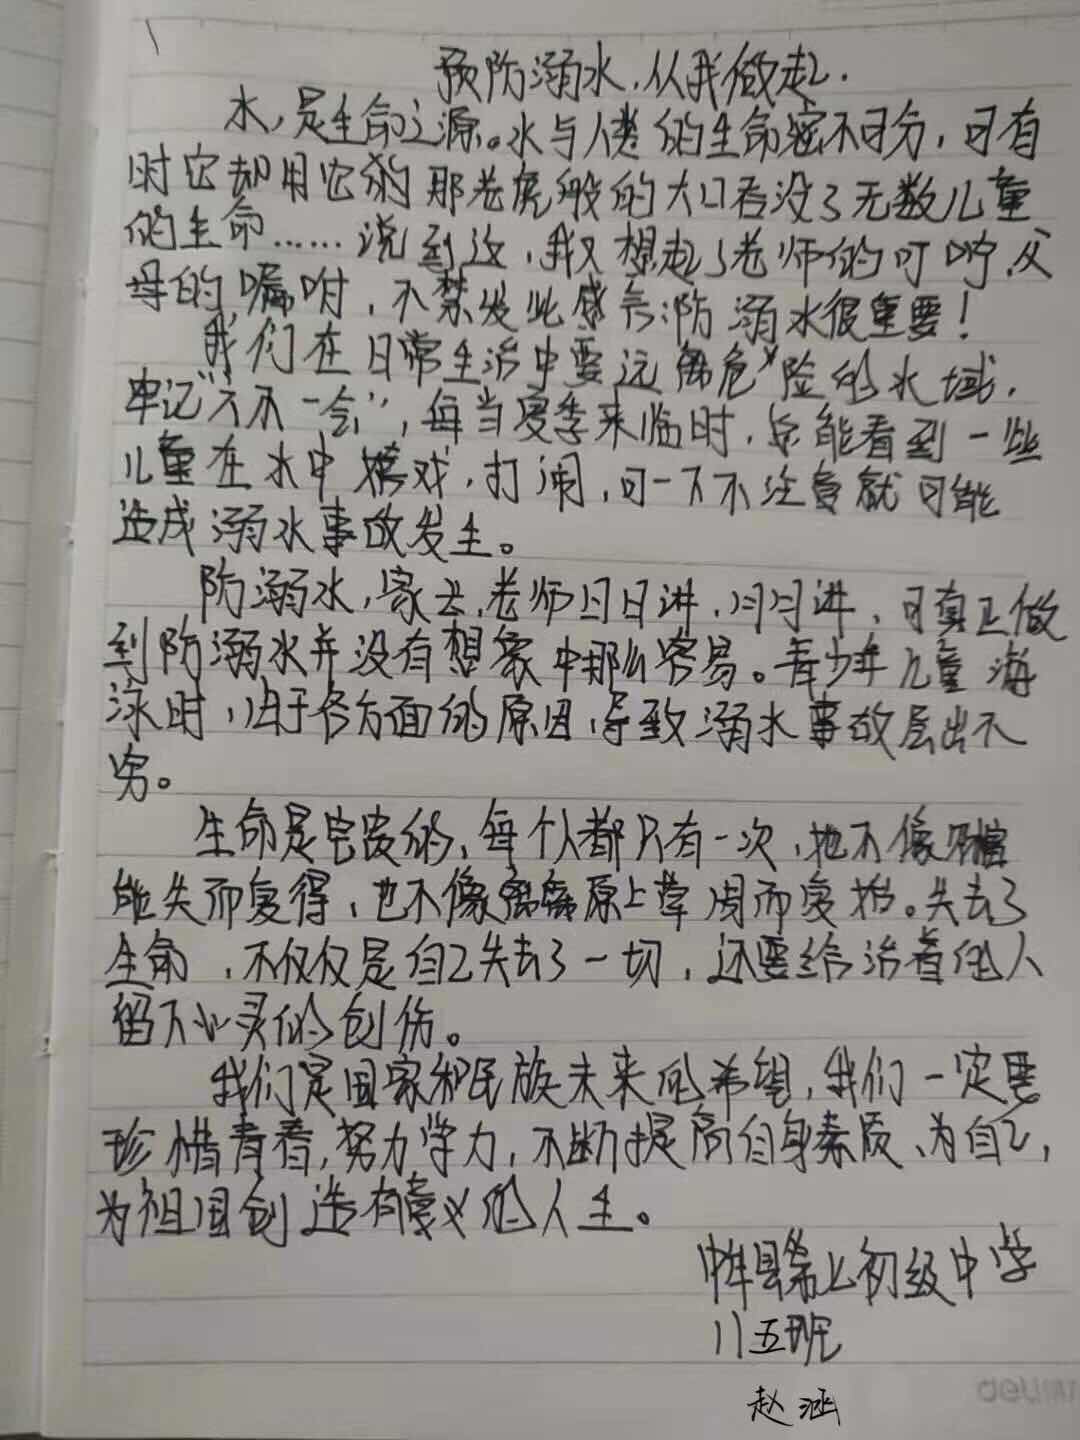 预防溺水,从我做起.
水,是生命之源。水与人类的生命密不可分,可有
时它却用它的那老虎般的大口吞没了无数儿童
的生命……说到这,我又想起了老师的叮咛、父
母的嘱咐,不禁发此感言:防溺水很重要!
我们在日常生活中要远离危险的水域,
牢记"六不一会",每当夏季来临时,总能看到一些
儿童在水中嬉戏,打闹,可一下不注意就可能
造成溺水事故发生。
防溺水,家长,老师日日讲,月月讲,可真正做
到防溺水并没有想象中那么容易。青少年儿童游
泳时,由于各方面的原因,导致溺水事故层出不
穷。
生命是宝贵的,每个人都只有一次,她不像
能失而复得,也不像离离原上草周而复始。失去了
生命,不仅仅是自己失去了一切,还要给活着的人
留下心灵的创伤。
我们是国家和民族未来的希望,我们一定要
珍惜青春,努力学力,不断提高自身素质、为自己,
为祖国创造有意义的人生。
县第 初级中学
八五班
赵涵